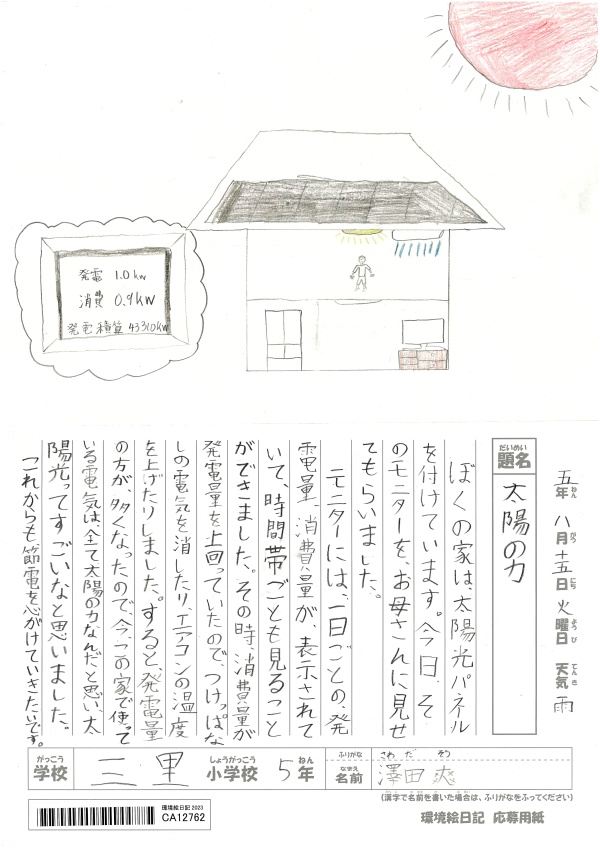 発電 1.0kw
消費 0.9kw
発電積算 43310kw
五年 八月 十五日 火曜日 天気 雨
ねん がつ にち ようび てんき
だいめい
題名 太陽の力
ぼくの家は、太陽光パネル
を付けています。今日、そ
のモニターを、お母さんに見せ
てもらいました。
モニターには、一日ごとの、発
電量、消費量が、表示されて
いて、時間帯ごとも見ること
ができました。その時、消費量が
発電量を上回っていたので、つけっぱな
しの電気を消したり、エアコンの温度
を上げたりしました。すると、発電量
の方が、多くなったので、今、この家で使って
いる電気は、全て太陽の力なんだと思い、太
陽光ってすごいなと思いました。
これからも、節電を心がけていきたいです。
がっこう しょうがっこう ねん ふりがな さわだ そう
学校 三里 小学校 5年 なまえ 名前 澤田 爽
(漢字で名前を書いた場合は、ふりがなをふってください)
環境絵日記 2023
CA12762
環境絵日記 応募用紙